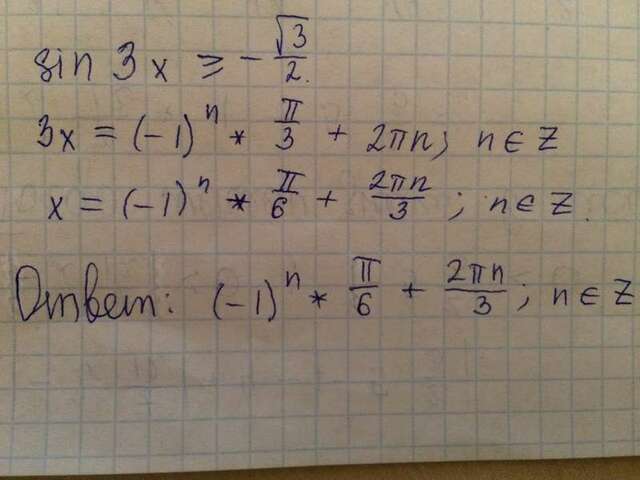 sin 3x ≥ -√3/2.
3x = (-1)ⁿ * π/3 + 2πn; n ∈ Z
x = (-1)ⁿ * π/6 + 2πn/3 ; n ∈ Z.
Ответ: (-1)ⁿ * π/6 + 2πn/3 ; n ∈ Z